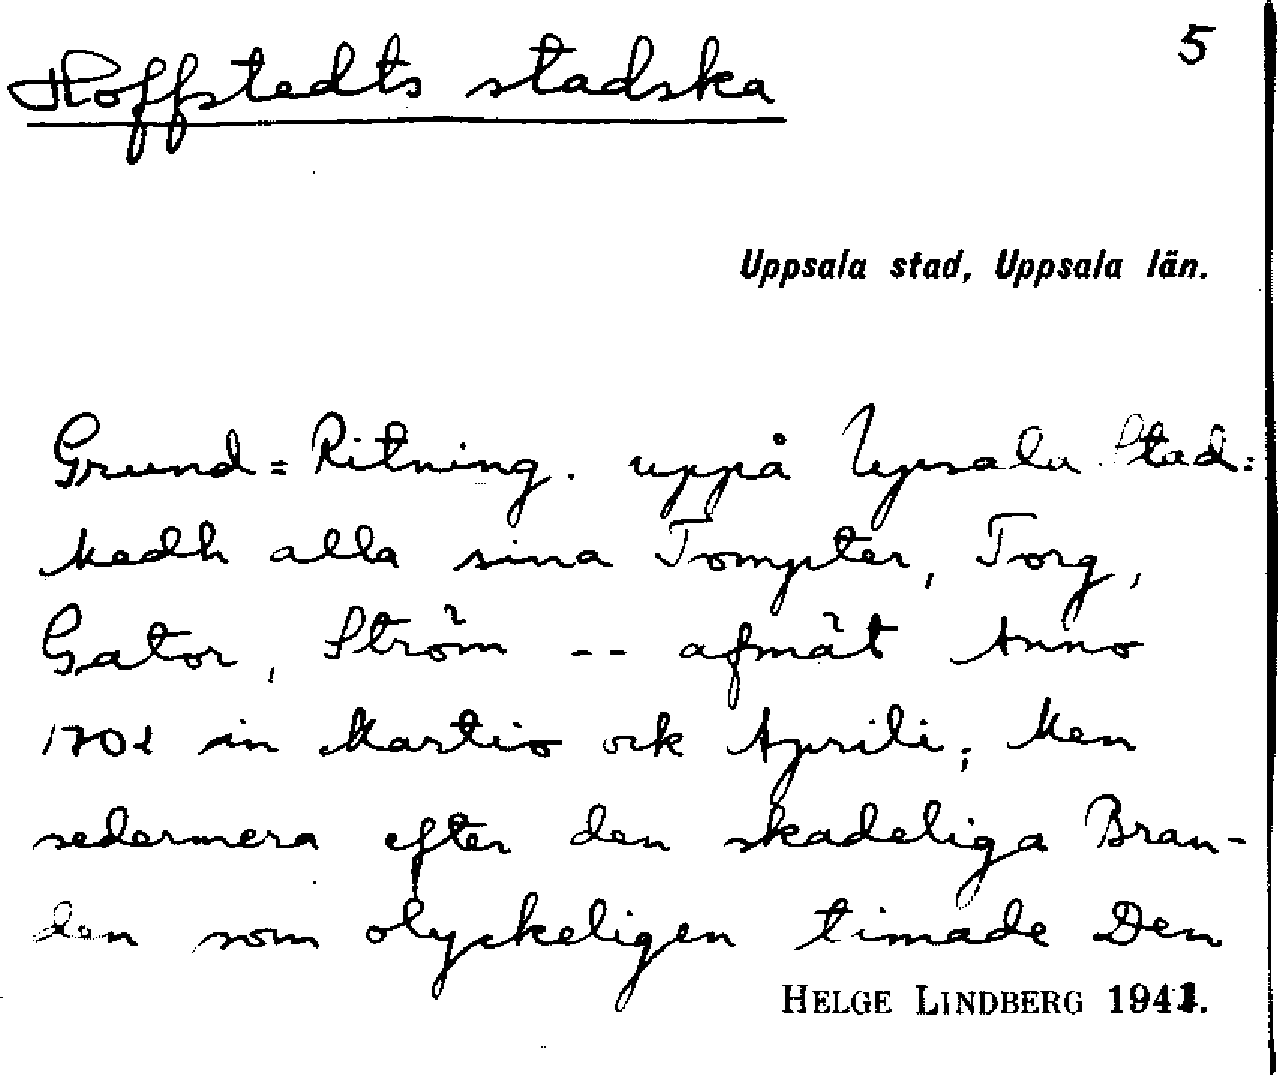 5
Hoffstedts stadska
Uppsala stad, Uppsala län.
Grund=Ritning. uppå Upsala Stad:
Medh alla sina Tompter, Torg,
Gator, Ström -- afmät Anno
1702 in Martio ock Aprili; Men
sedermera efter den skadeliga Bran-
den som olyckeligen timade Den
HELGE LINDBERG 1941.